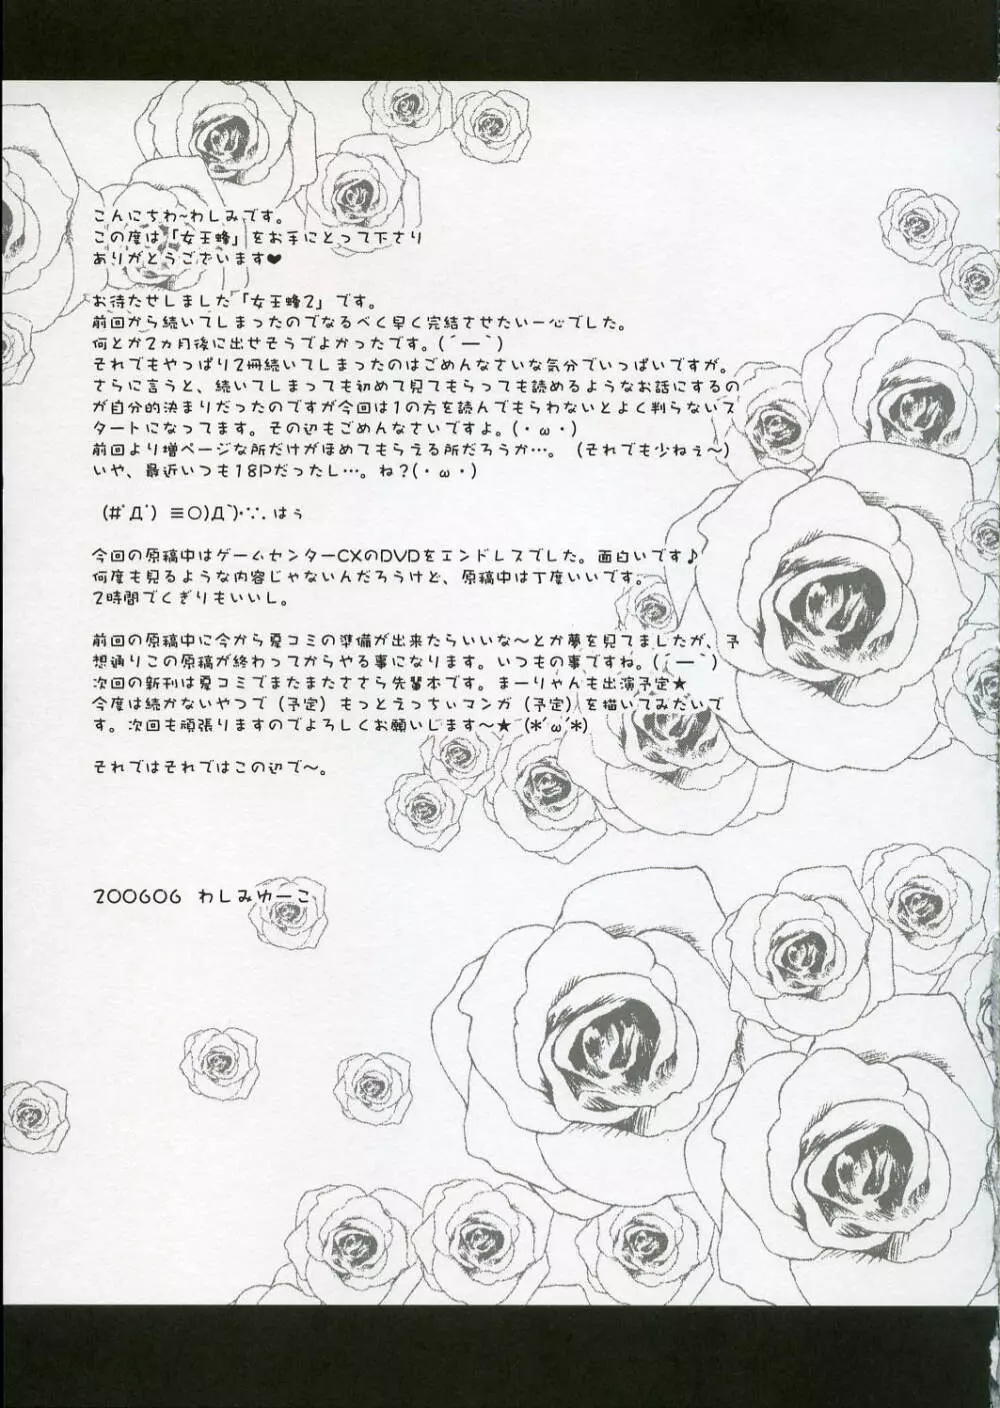 こんにちわ~わしみです。
この度は「女王蜂」をお手にとって下さり
ありがとうございます♥
お待たせしました「女王蜂2」です。
前回から続いてしまったのでなるべく早く完結させたい一心でした。
何とか2ヵ月後に出せそうでよかったです。(´ー｀)
それでもやっぱり2冊続いてしまったのはごめんなさいな気分でいっぱいですが。
さらに言うと、続いてしまっても初めて見てもらっても読めるようなお話にするの
が自分的決まりだったのですが今回は1の方を読んでもらわないとよく判らないス
タートになってます。その辺もごめんなさいですよ。(・ω・)
前回より増ページな所だけがほめてもらえる所だろうか…。(それでも少ねぇ〜)
いや、最近いつも18Pだったし…。ね?(・ω・)
(#ﾟДﾟ) ≡○)Д`)･∵. はぅ
今回の原稿中はゲームセンターCXのDVDをエンドレスでした。面白いです♪
何度も見るような内容じゃないんだろうけど、原稿中は丁度いいです。
2時間でくぎりもいいし。
前回の原稿中に今から夏コミの準備が出来たらいいな〜とか夢を見てましたが、予
想通りこの原稿が終わってからやる事になります。いつもの事ですね。(´ー｀)
次回の新刊は夏コミでまたまたささら先輩本です。まーりゃんも出演予定★
今度は続かないやつで(予定)もっとえっちぃマンガ(予定)を描いてみたいで
す。次回も頑張りますのでよろしくお願いします〜★ (*´ω`*)
それではそれではこの辺で〜。
200606 わしみゆーこ